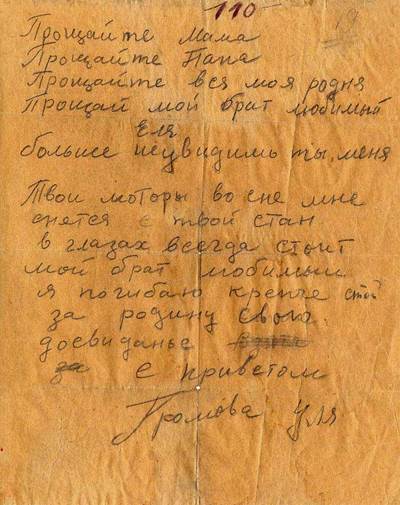 110
19
Прощайте мама
Прощайте Папа
Прощайте вся моя родня
Прощай мой брат любимый
Еля
больше неувидишь ты, меня
Твои моторы во сне мне
снятся е твой стан
в глазах всегда стоит
мой брат любимый
я погибаю крепче стой
за родину свою.
досвиданье
за
С приветом
Громова Уля